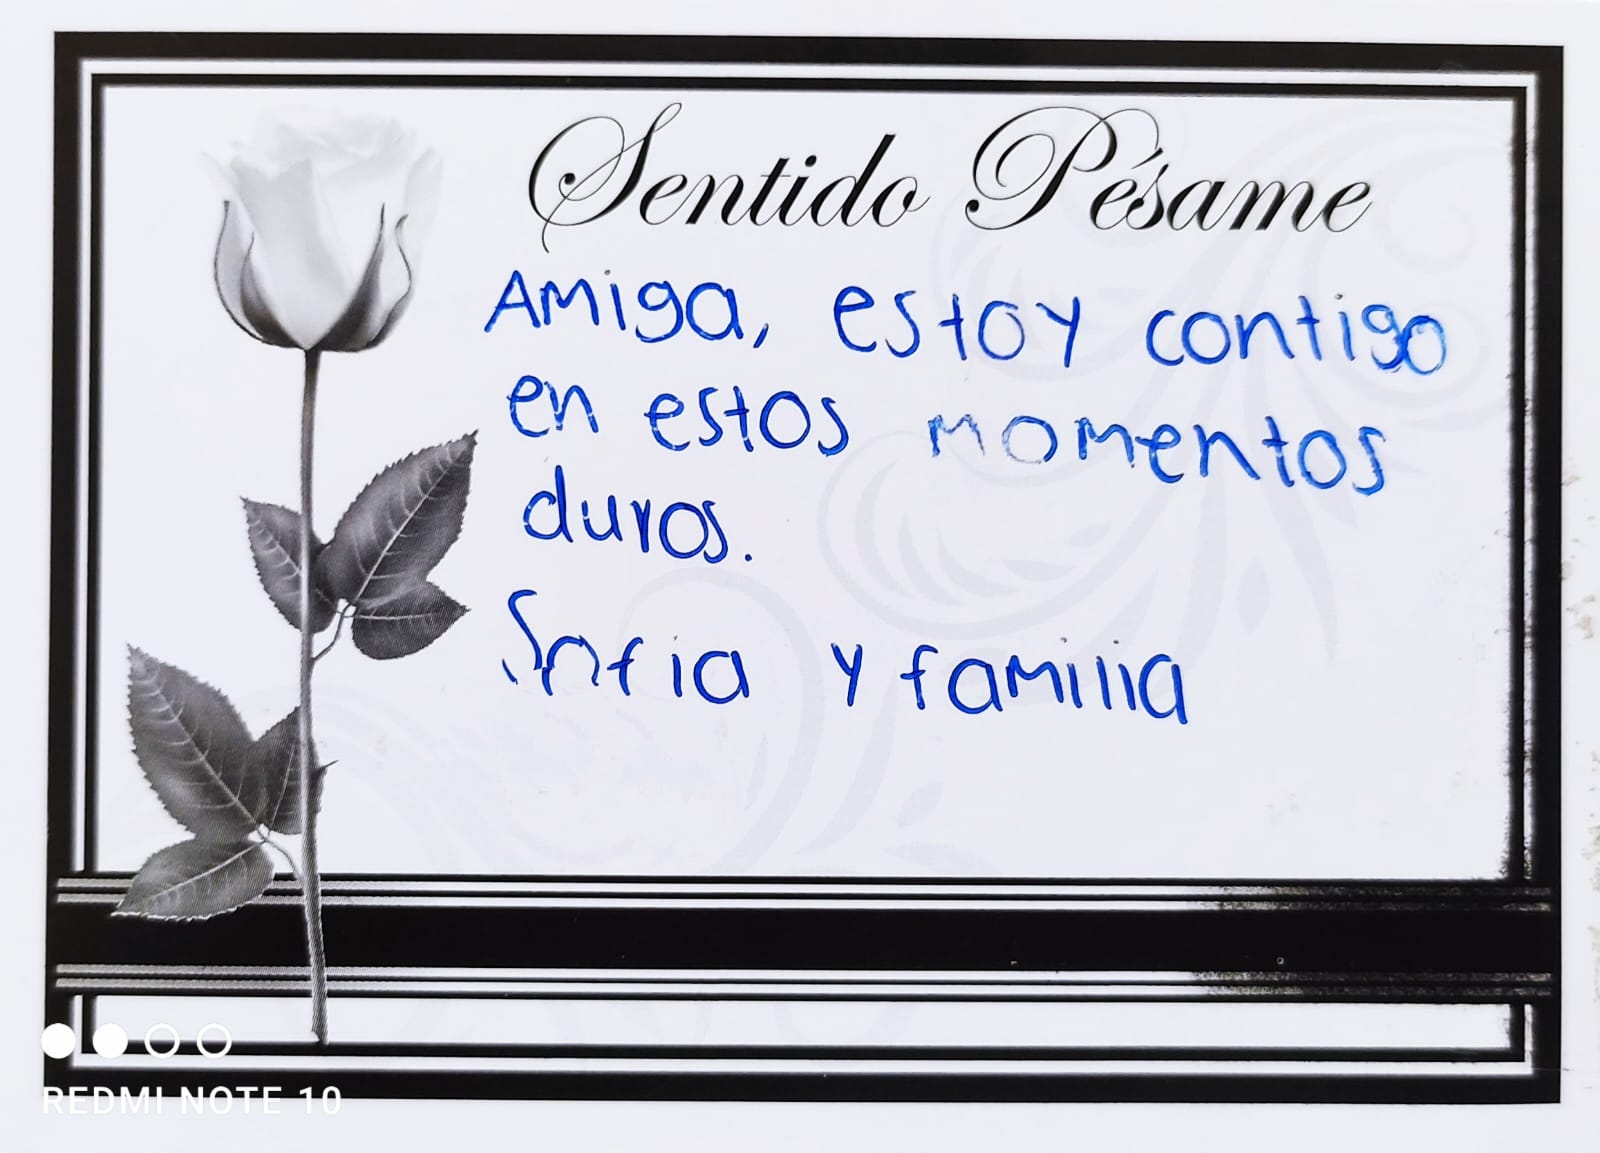 Sentido Pésame
Amiga, estoy contigo
en estos momentos
duros.
Sofia y familia
REDMI NOTE 10